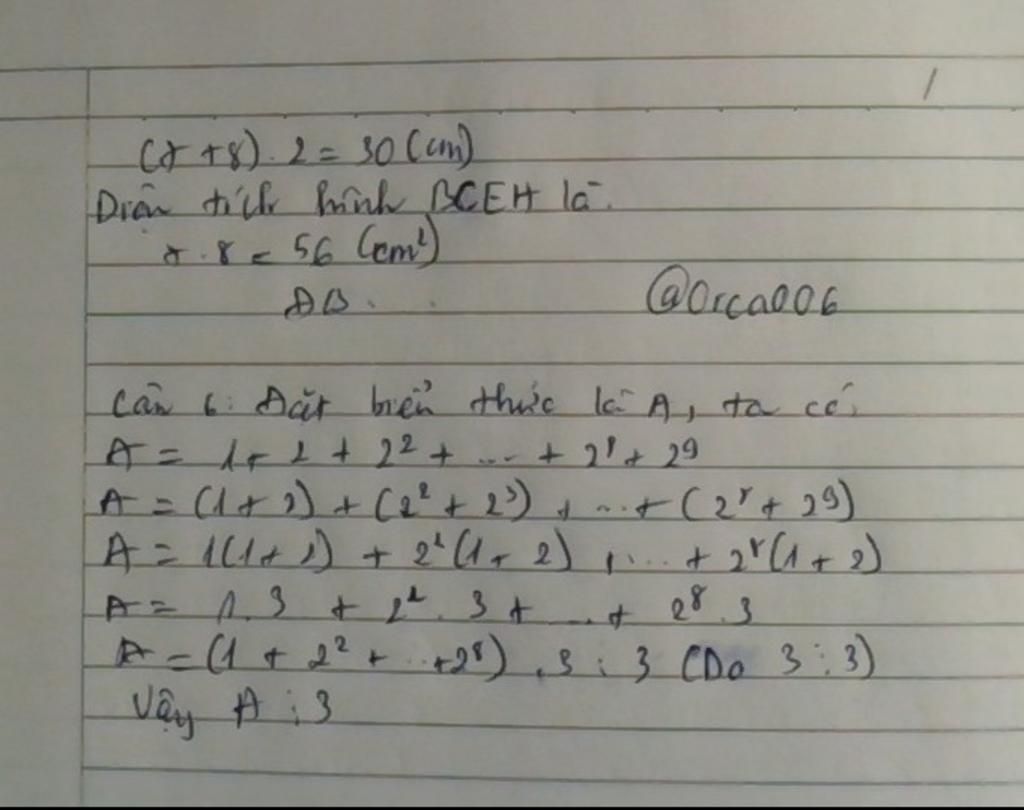 (7 + 8) . 2 = 30 (cm)
Diện tích hình BCEH là.
7 . 8 = 56 (cm²)
ĐS.
@Orca006
Câu 6: Đặt biểu thức là A, ta có,
A = 1 + 2 + 2² + ... + 2⁸ + 2⁹
A = (1 + 2) + (2² + 2³) + ... + (2⁸ + 2⁹)
A = 1(1 + 2) + 2²(1 + 2) + ... + 2⁸(1 + 2)
A = 1 . 3 + 2² . 3 + ... + 2⁸ . 3
A = (1 + 2² + ... + 2⁸) . 3 ⋮ 3 (Do 3 ⋮ 3)
Vậy A ⋮ 3